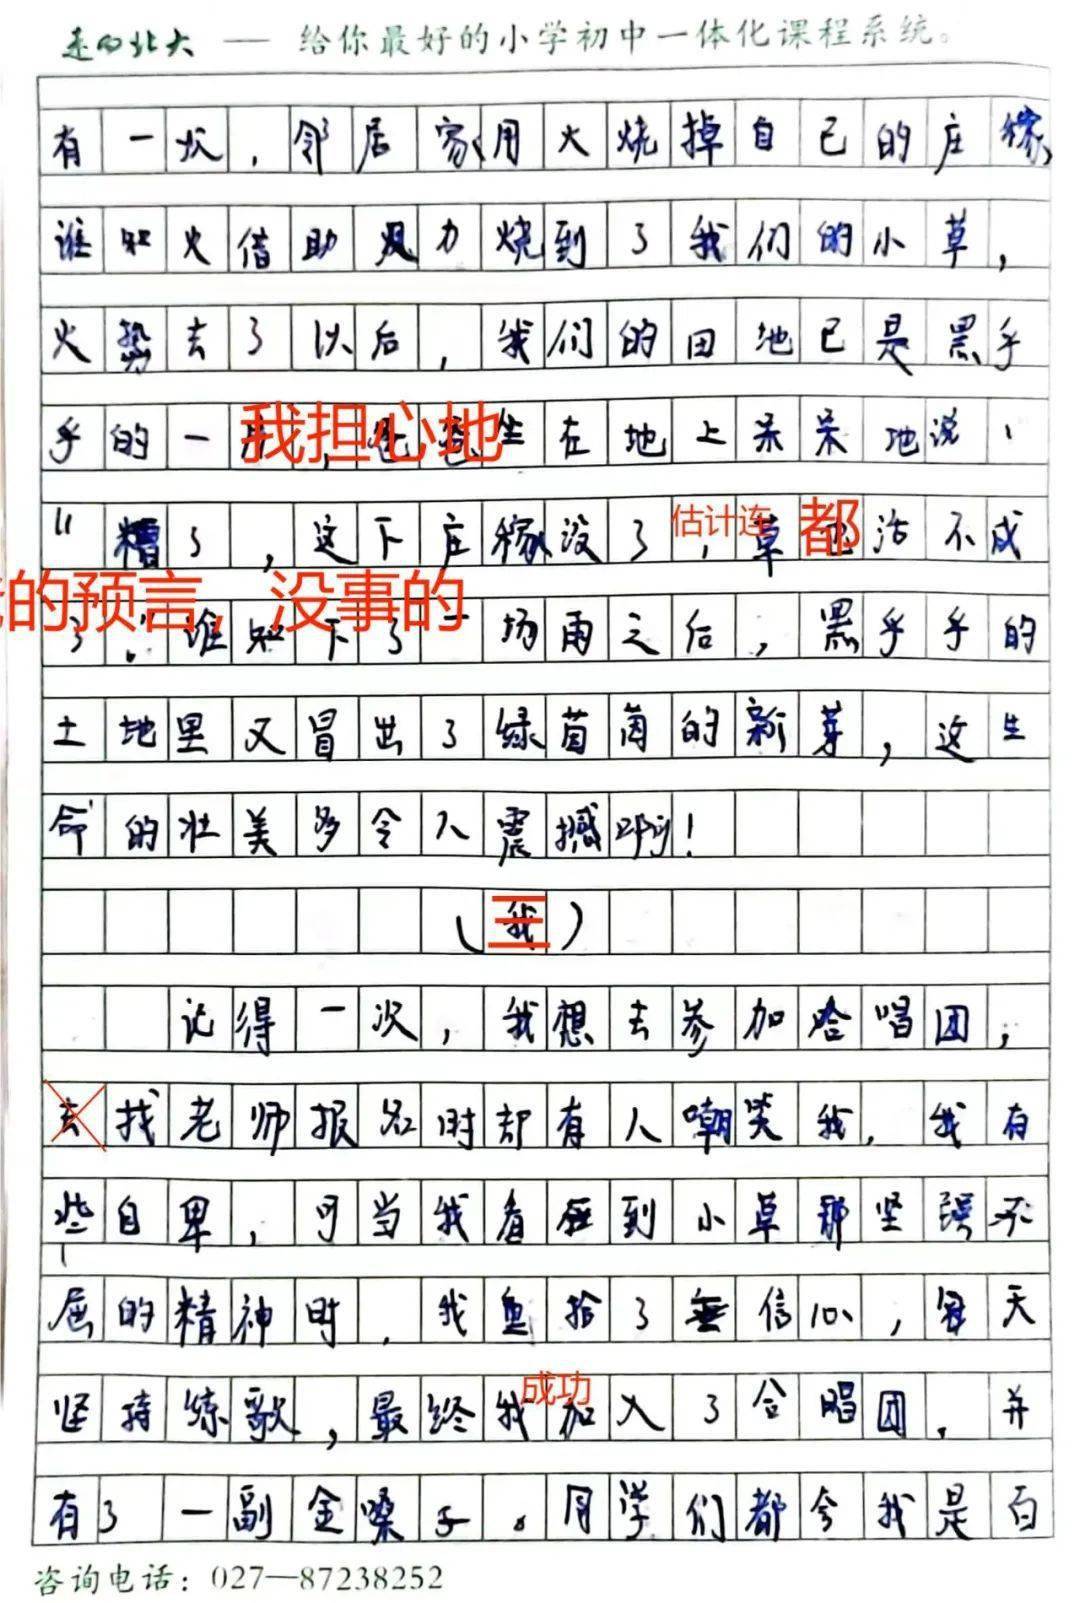 走向北大 — 给你最好的小学初中一体化课程系统。
有一次，邻居家用火烧掉自己的庄稼，
谁知火借助风力烧到了我们的小草，
火势去了以后，我们的田地已是黑乎
我担心地
乎的一片，爸爸坐在地上呆呆地说：
估计连 都
“糟了，这下庄稼没了，草也活不成
的预言，没事的
了。”谁知下了一场雨之后，黑乎乎的
土地里又冒出了绿茵茵的新芽，这生
命的壮美多令人震撼啊！
三
（我）
记得一次，我想去参加合唱团，
去找老师报名时却有人嘲笑我，我有
些自卑，可当我看到小草那坚强不
屈的精神时，我重拾了信心，每天
成功
坚持练歌，最终我加入了合唱团，并
有了一副金嗓子。同学们都夸我是百
咨询电话：027—87238252